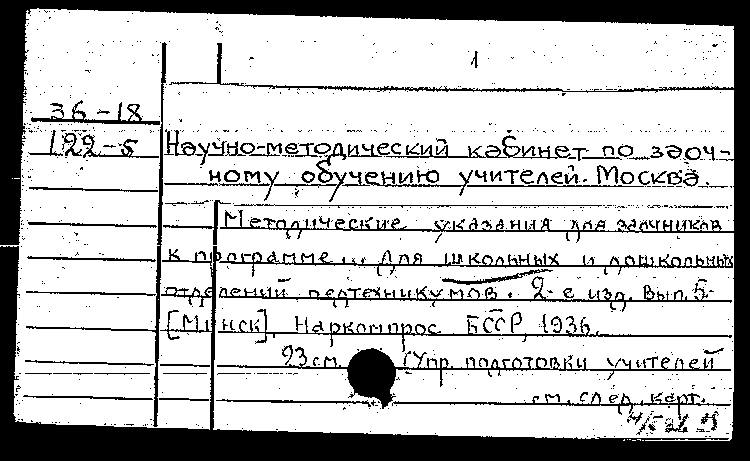 1
36-18
122-5
Научно-методический кабинет по заоч-
ному обучению учителей. Москва.
Методические указания для заочников
к программе... для школьных и дошкольных
отделений педтехникумов. 2-е изд. Вып. 5-
[Минск], Наркомпрос БССР, 1936.
23 см. (Упр. подготовки учителей
см. след. карт.